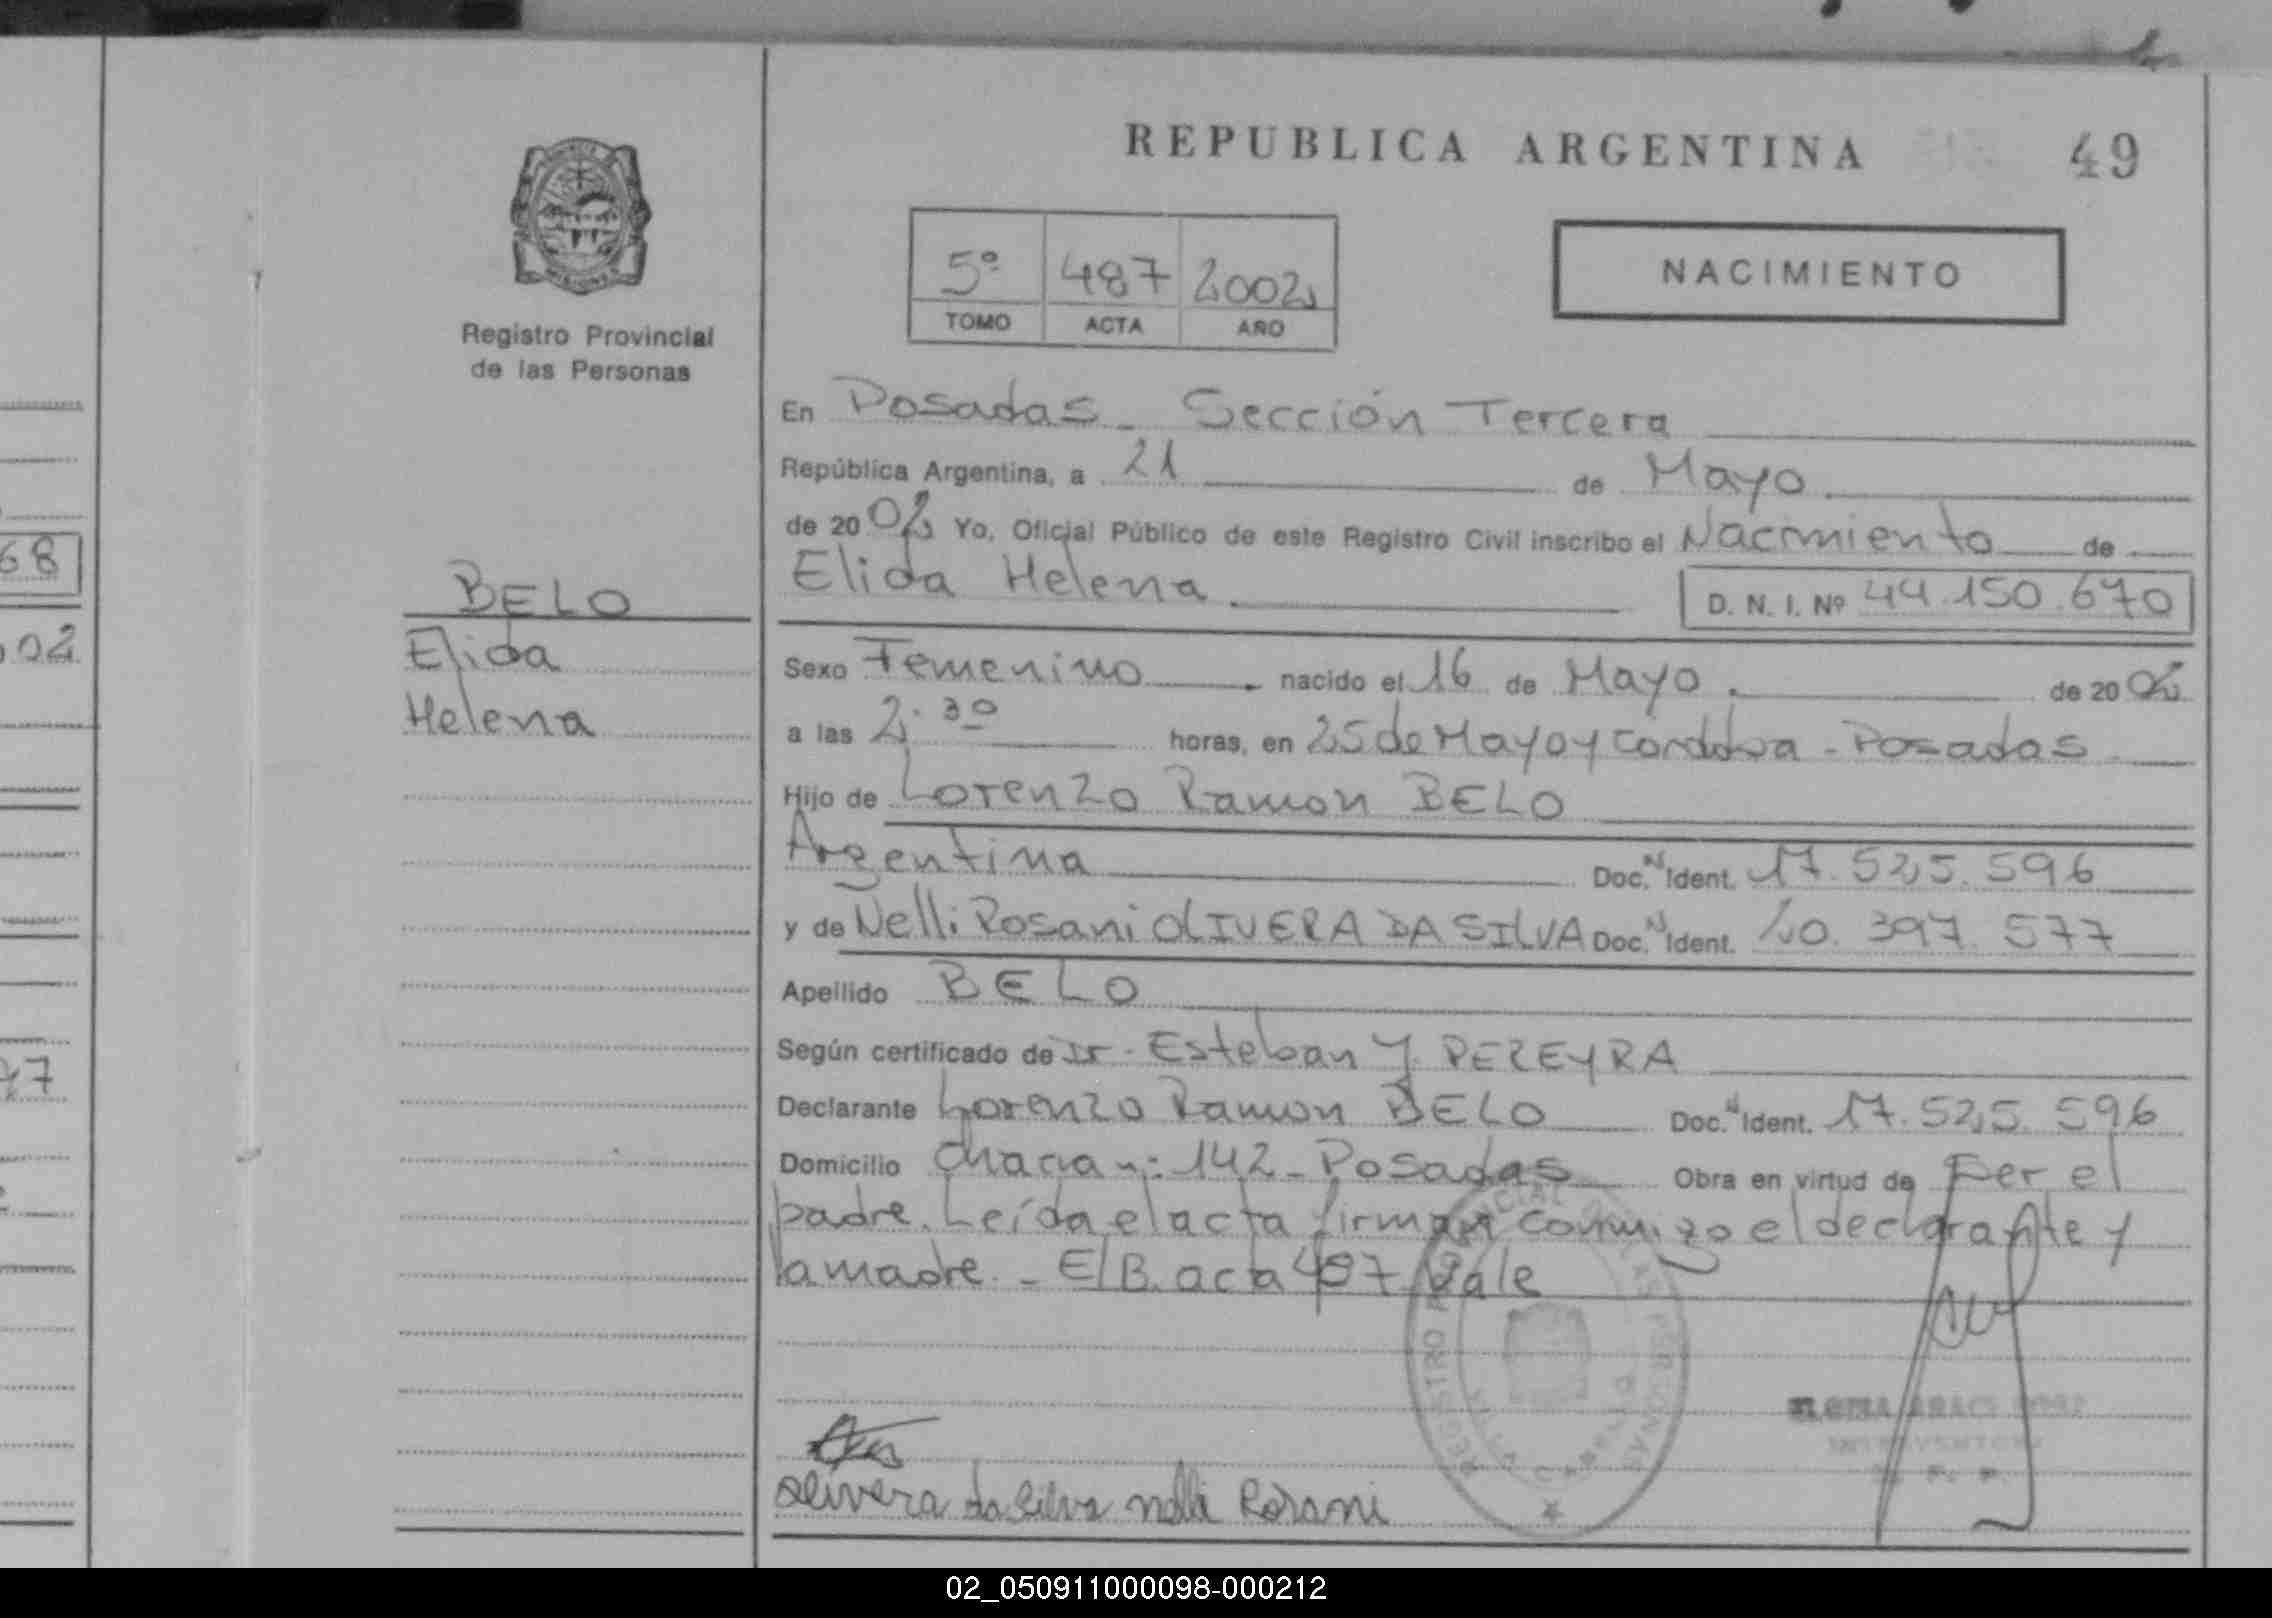 REPUBLICA ARGENTINA 49
5º 487 2002
TOMO ACTA AÑO
NACIMIENTO
Registro Provincial
de las Personas
En Posadas - Sección Tercera
República Argentina, a 21 de Mayo
de 2002 Yo, Oficial Público de este Registro Civil inscribo el Nacimiento de
Elida Helena D. N. I. Nº 44.150.670
BELO
Elida
Helena
Sexo Femenino nacido el 16 de Mayo de 2002
a las 2.30 horas, en 25 de Mayo y Cordoba - Posadas
Hijo de Lorenzo Ramon BELO
Argentina Doc. N Ident. 17.525.596
y de Nelli Rosani OLIVERA DA SILVA Doc. N Ident. 20.397.577
Apellido BELO
Según certificado de Dr. Esteban Y. PEREYRA
Declarante Lorenzo Ramon BELO Doc. N Ident. 17.525.596
Domicilio 142 - Posadas Obra en virtud de Ser el
padre. Leída el acta firman conmigo el declarante y
la madre. - E/B. acta 487 Vale
REGISTRO PROVINCIAL DE LAS PERSONAS
olivera da Silva nelli Rosani
68
02
77
02_050911000098-000212